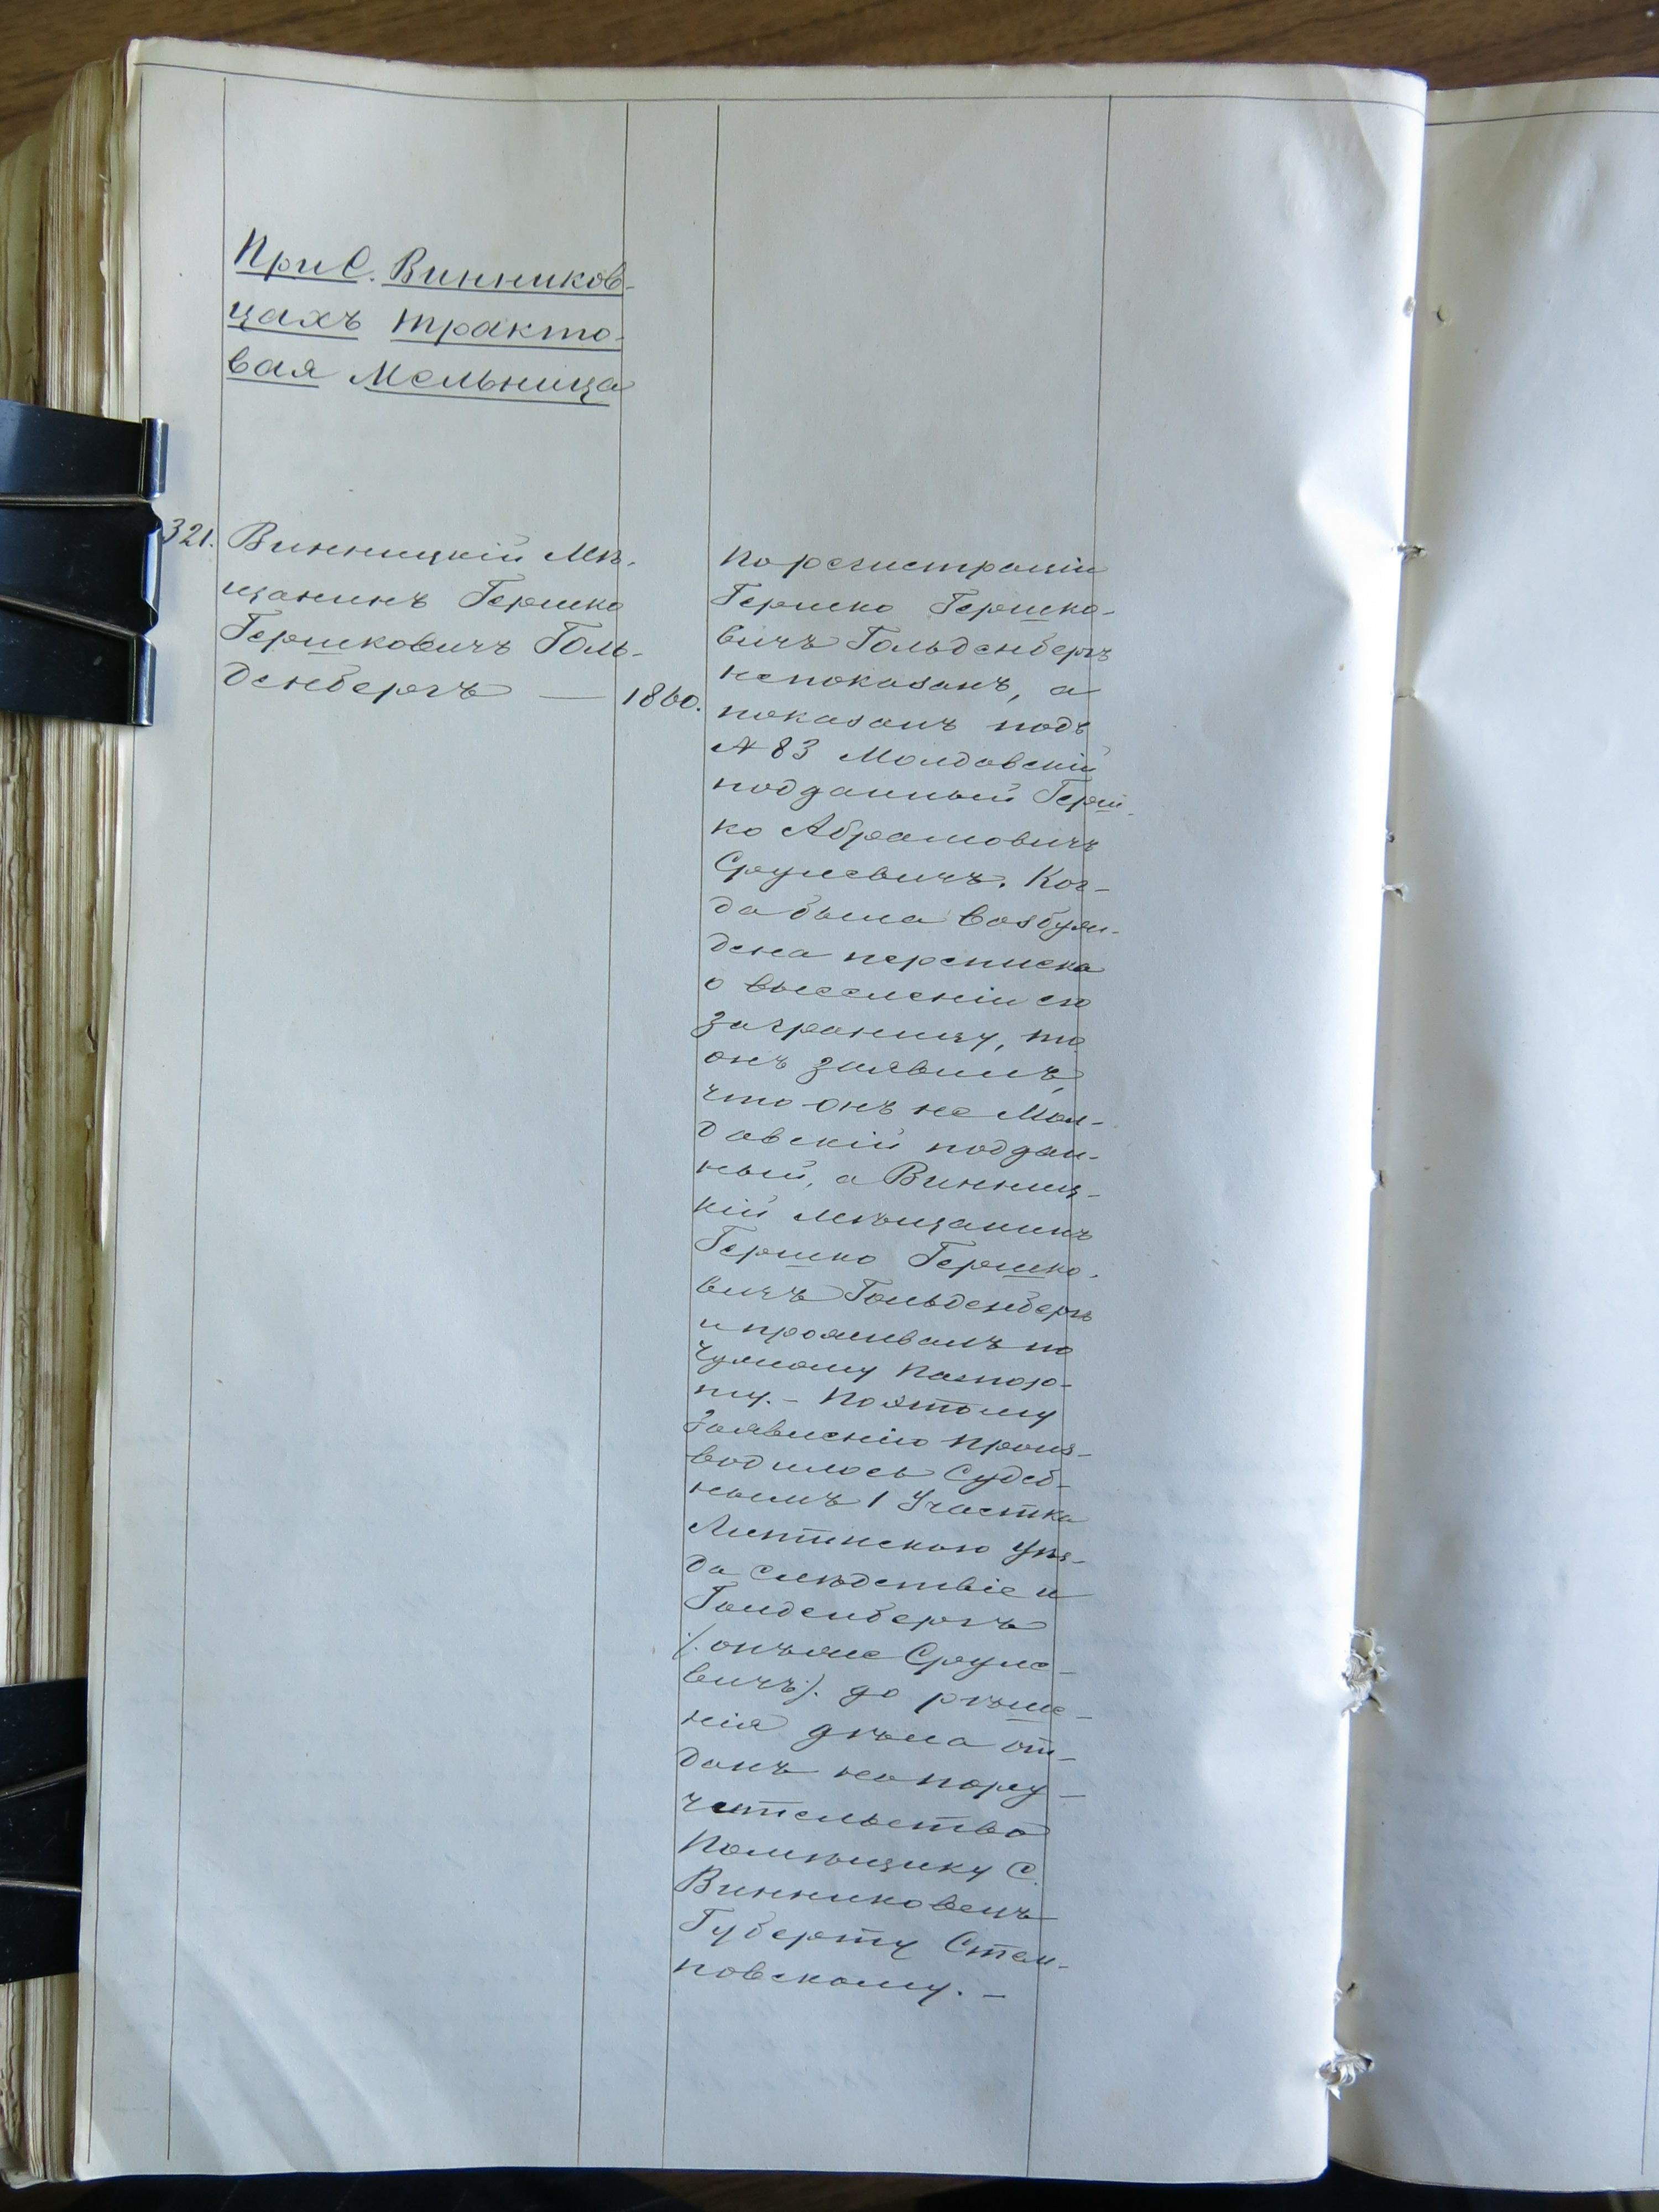 При С. Винников-
цахъ тракто-
вая Мельница
321. Винницкій Мѣ-
щанинъ Гершко
Гершковичъ Голь-
денбергъ — 1860.
По регистраціи
Гершко Гершко-
вичъ Гольденбергъ
непоказанъ, а
показанъ подъ
№ 83 Молдавскій
подданный Герш-
ко Абрамовичъ
Срулевичъ. Ког-
да была возбуж-
дена переписка
о выселеніи его
заграницу, то
онъ заявилъ,
что онъ не Мол-
давскій поддан-
ный, а Винниц-
кій мѣщанинъ
Гершко Гершко-
вичъ Гольденбергъ
и проживалъ по
чужому паспор-
ту. – Поэтому
заявленію произ-
водилось Судеб-
нымъ 1 Участка
Литинскаго уѣз-
да слѣдствіе и
Голденбергъ
/: онъ же Сруле-
вичъ :/ до рѣше-
нія дѣла от-
данъ на пору-
чительство
Помѣщику С.
Винниковецъ
Губерту Стем-
повскому. –